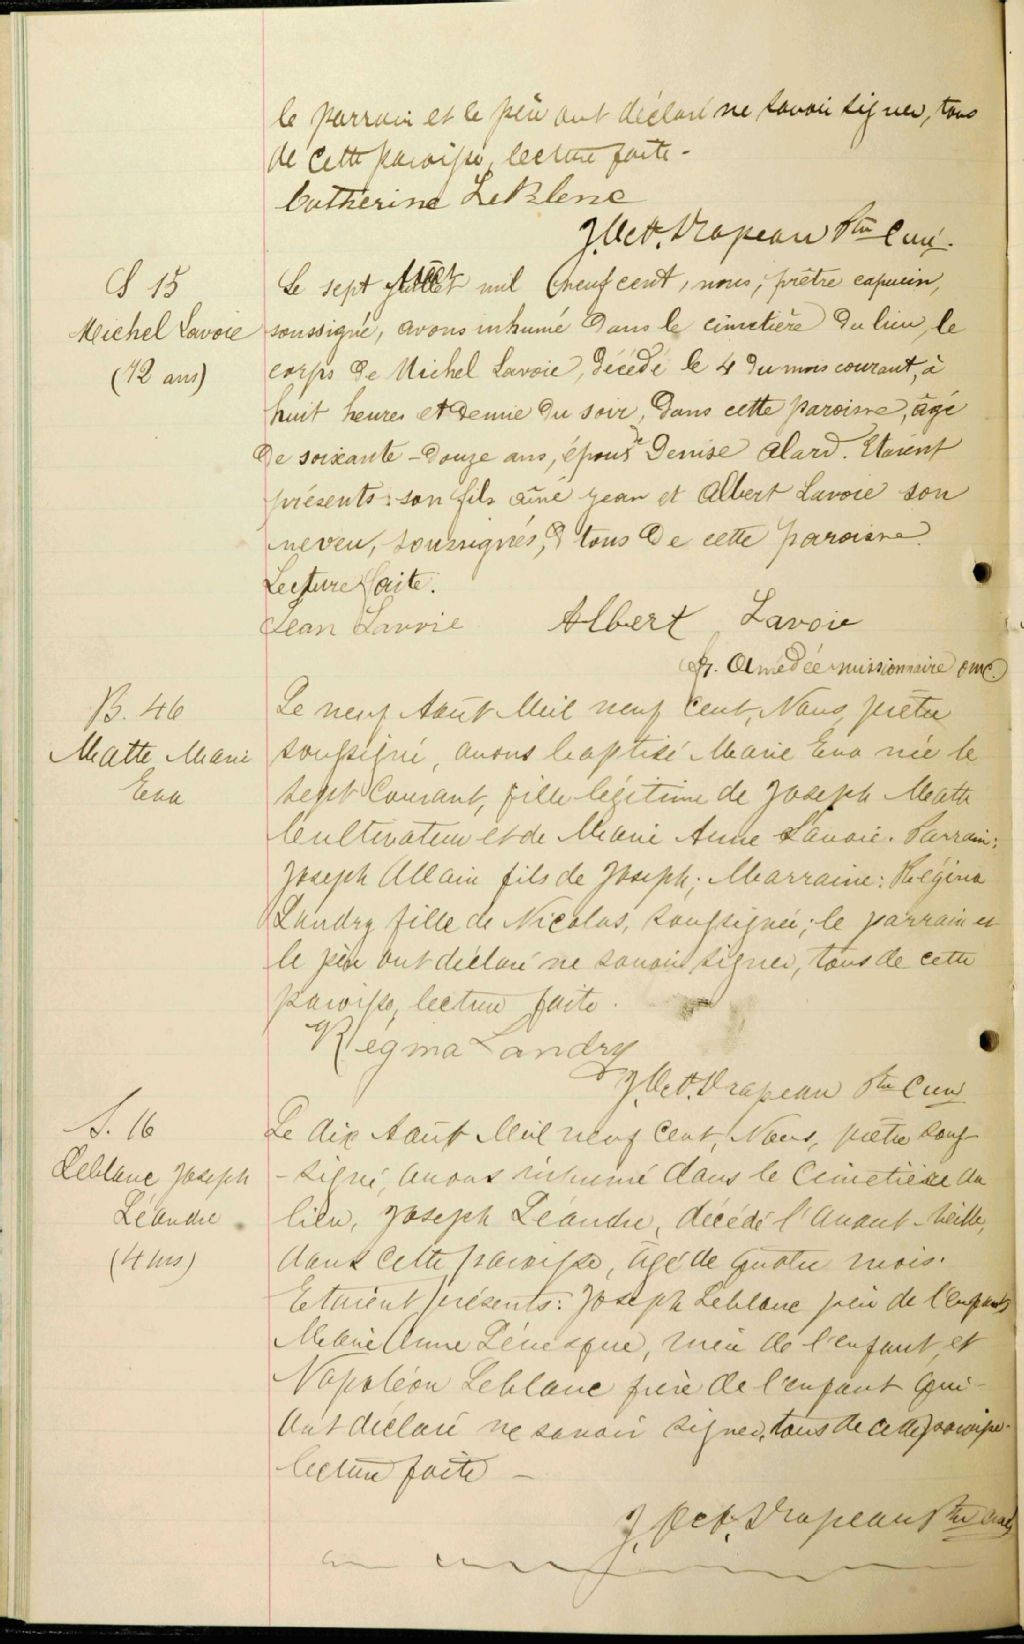 le parrain et le père ont déclaré ne savoir signer, tous
de cette paroisse, lecture faite -
Catherine LeBlenc
J. Oct. Drapeau Ptre Curé.
S 15
Michel Lavoie
(72 ans)
Le sept juillet août mil neuf cent, nous, prêtre capucin,
soussigné, avons inhumé dans le cimetière du lieu, le
corps de Michel Lavoie, décédé le 4 du mois courant, à
huit heures et demie du soir, dans cette paroisse, âgé
de soixante-douze ans, époux de Denise Alard. Etaient
présents: son fils aîné Jean et Albert Lavoie son
neveu, soussignés, tous de cette paroisse.
Lecture faite.
Jean Lavoie Albert Lavoie
fr. Amédée missionnaire omc.
B. 46
Matte Marie
Eva
Le neuf Août Mil neuf cent, Nous, prêtre
soussigné, avons baptisé Marie Eva née le
sept Courant, fille légitime de Joseph Matte
Cultivateur et de Marie Anne Lavoie. Parrain:
Joseph Allain fils de Joseph; Marraine: Régina
Landry fille de Nicolas, soussignée; le parrain et
le père ont déclaré ne savoir signer, tous de cette
paroisse, lecture faite.
Régina Landry
J. Oct. Drapeau Ptre Curé
S. 16
Leblanc Joseph
Léandre
(4 ms)
Le dix Août Mil neuf Cent, Nous, prêtre sous-
-signé, avons inhumé dans le Cimetière du
lieu, Joseph Léandre, décédé l'avant-veille,
dans cette paroisse, âgé de quatre mois.
Etaient présents: Joseph Leblanc père de l'enfant,
Marie Anne Lévesque, mère de l'enfant, et
Napoléon Leblanc frère de l'enfant qui
ont déclaré ne savoir signer, tous de cette paroisse-
lecture faite -
J. Oct. Drapeau Ptre Curé